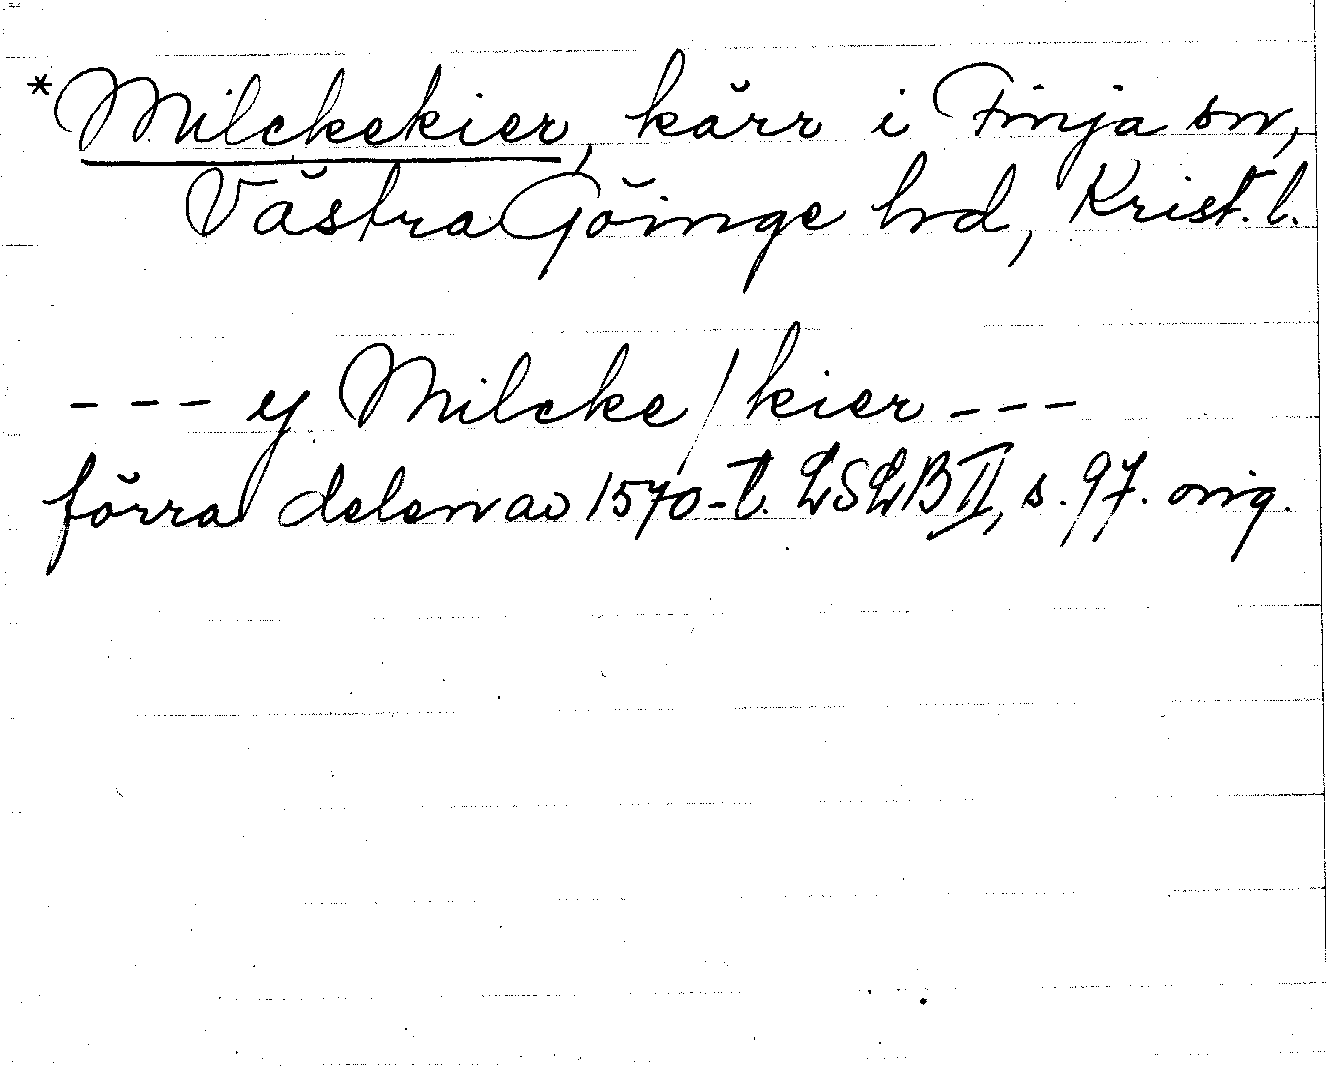 *Milckekier, kärr i Finja sn,
Västra Göinge hd, Krist. l.
--- y Milcke/kier ---
förra delen av 1570-t. LSLB II, s. 97. orig.